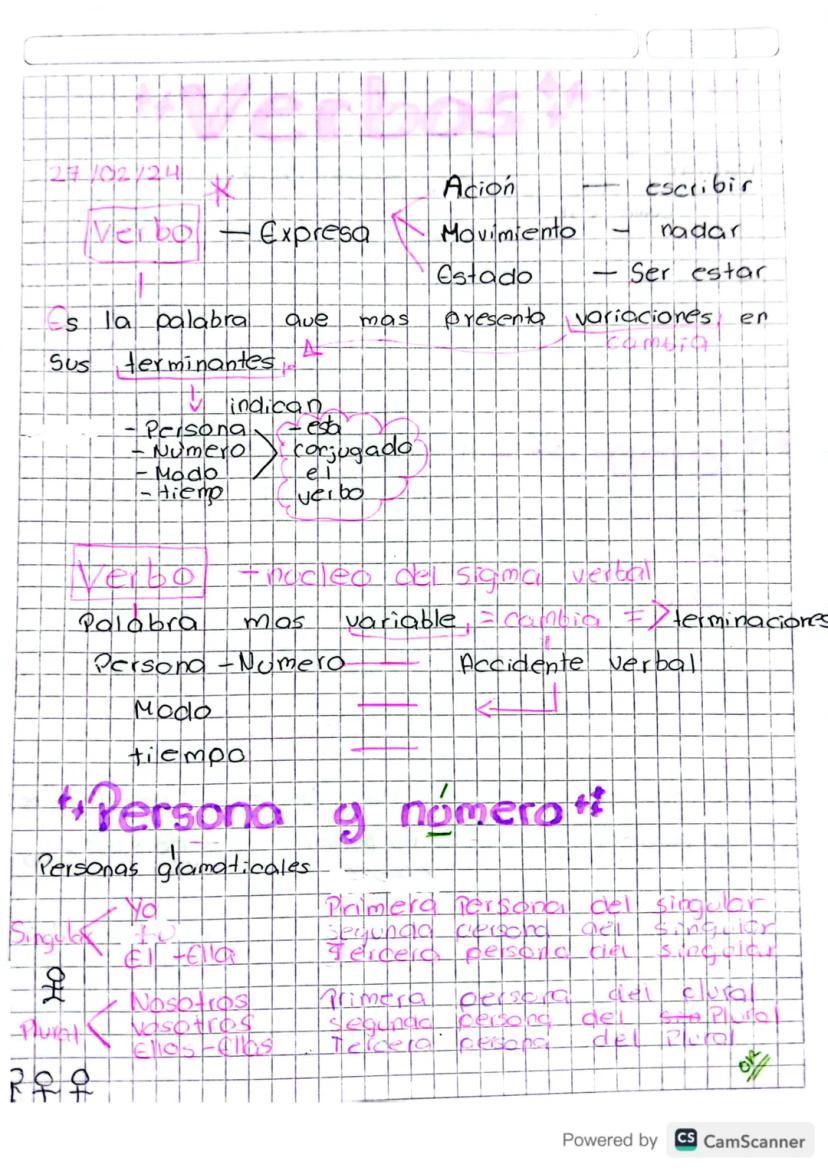 "Verbos"
27/02/24
Verbo — Expresa
Ación — escribir
Movimiento - nadar
Estado — Ser estar
Es la palabra que mas presenta variaciones en
cambia
sus terminantes
indican
- Persona
- Número
- Modo
- tiemp
- esta
conjugado
el
verbo
Verbo - núcleo del sigma verbal
Palabra mas variable = cambia => terminaciones
Persona - Número — Accidente verbal
Modo —
tiempo —
"Persona y número"
Personas gramaticales
Singular
Yo Primera Persona del singular
Tú segunda persona del singular
El - Ella Tercera persona del singular
Plural
Nosotros Primera persona del plural
vosotros segunda persona del Plural
Ellos - Ellas Tercera persona del Plural
OK
Powered by CS CamScanner